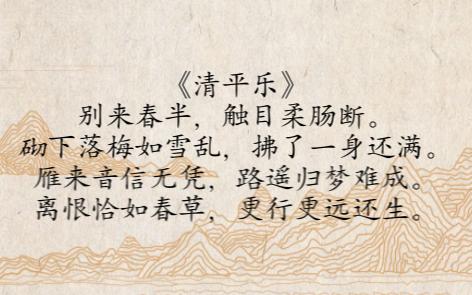 《清平乐》
别来春半，触目柔肠断。
砌下落梅如雪乱，拂了一身还满。
雁来音信无凭，路遥归梦难成。
离恨恰如春草，更行更远还生。